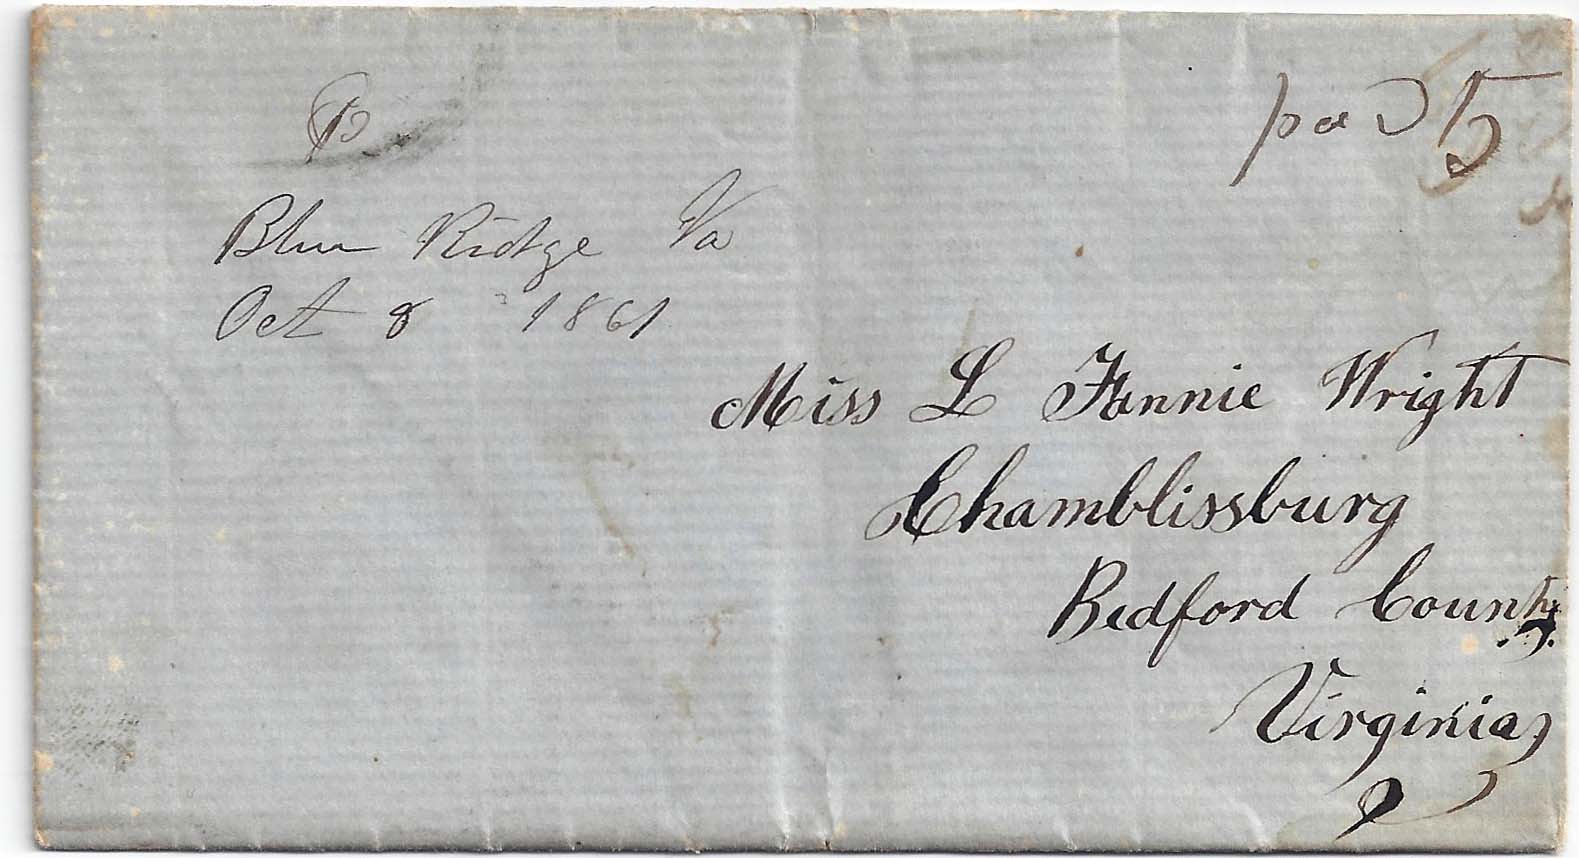 pad 5
Blue Ridge Va
Oct 8 1861
Miss L Fannie Wright
Chamblissburg
Bedford County
Virginia